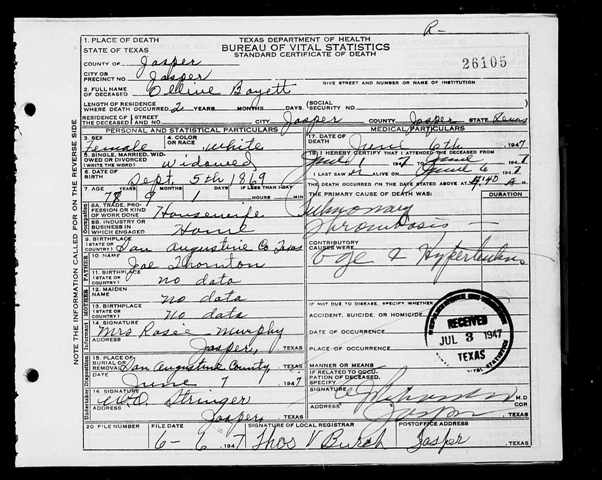 R-
TEXAS DEPARTMENT OF HEALTH
BUREAU OF VITAL STATISTICS
STANDARD CERTIFICATE OF DEATH
26105
1. PLACE OF DEATH
STATE OF TEXAS
COUNTY OF Jasper
CITY OR PRECINCT NO. Jasper
GIVE STREET AND NUMBER OR NAME OF INSTITUTION
2. FULL NAME OF DECEASED Boyett
LENGTH OF RESIDENCE WHERE DEATH OCCURRED 2 YEARS MONTHS DAYS (SOCIAL SECURITY NO.
RESIDENCE OF THE DECEASED STREET AND NO. CITY Jasper COUNTY Jasper STATE Texas
PERSONAL AND STATISTICAL PARTICULARS
MEDICAL PARTICULARS
3. SEX Female
4. COLOR OR RACE white
17. DATE OF DEATH June 6th 1947
5. SINGLE, MARRIED, WIDOWED OR DIVORCED (WRITE THE WORD) Widowed
18. I HEREBY CERTIFY THAT I ATTENDED THE DECEASED FROM June 1 1947 TO June 1947
6. DATE OF BIRTH Sept. 5th 1869
I LAST SAW ALIVE ON June 6 1947
7. AGE YEARS MONTHS DAYS IF LESS THAN 1 DAY HOURS MIN
9 1
THE DEATH OCCURRED ON THE DATE STATED ABOVE AT 4:40 A M.
THE PRIMARY CAUSE OF DEATH WAS: DURATION
8A. TRADE, PROFESSION OR KIND OF WORK DONE Housewife
Pulmonary
8B. INDUSTRY OR BUSINESS IN WHICH ENGAGED Home
Thrombosis
9. BIRTHPLACE (STATE OR COUNTRY) San Augustine Co Texas
CONTRIBUTORY CAUSES WERE
Age & Hypertension
10. NAME Joe Thornton
11. BIRTHPLACE (STATE OR COUNTRY) no data
12. MAIDEN NAME no data
IF NOT DUE TO DISEASE, SPECIFY WHETHER:
ACCIDENT, SUICIDE, OR HOMICIDE
13. BIRTHPLACE (STATE OR COUNTRY) no data
DATE OF OCCURRENCE
14. SIGNATURE Mrs Rosie Murphy
ADDRESS Jasper, TEXAS
PLACE OF OCCURRENCE
15. PLACE OF BURIAL OR REMOVAL San Augustine County
June 7 1947
MANNER OR MEANS
IF RELATED TO OCCUPATION OF DECEASED, SPECIFY
16. SIGNATURE Stringer
ADDRESS Jasper TEXAS
SIGNATURE M.D.
COR
ADDRESS Jasper TEXAS
RECEIVED
JUL 3 1947
TEXAS
20 FILE NUMBER
FILE DATE 6-6 1947
SIGNATURE OF LOCAL REGISTRAR Thos V Burch
POSTOFFICE ADDRESS Jasper, TEXAS
NOTE THE INFORMATION CALLED FOR ON THE REVERSE SIDE
FATHER
MOTHER
Informant
Undertaker